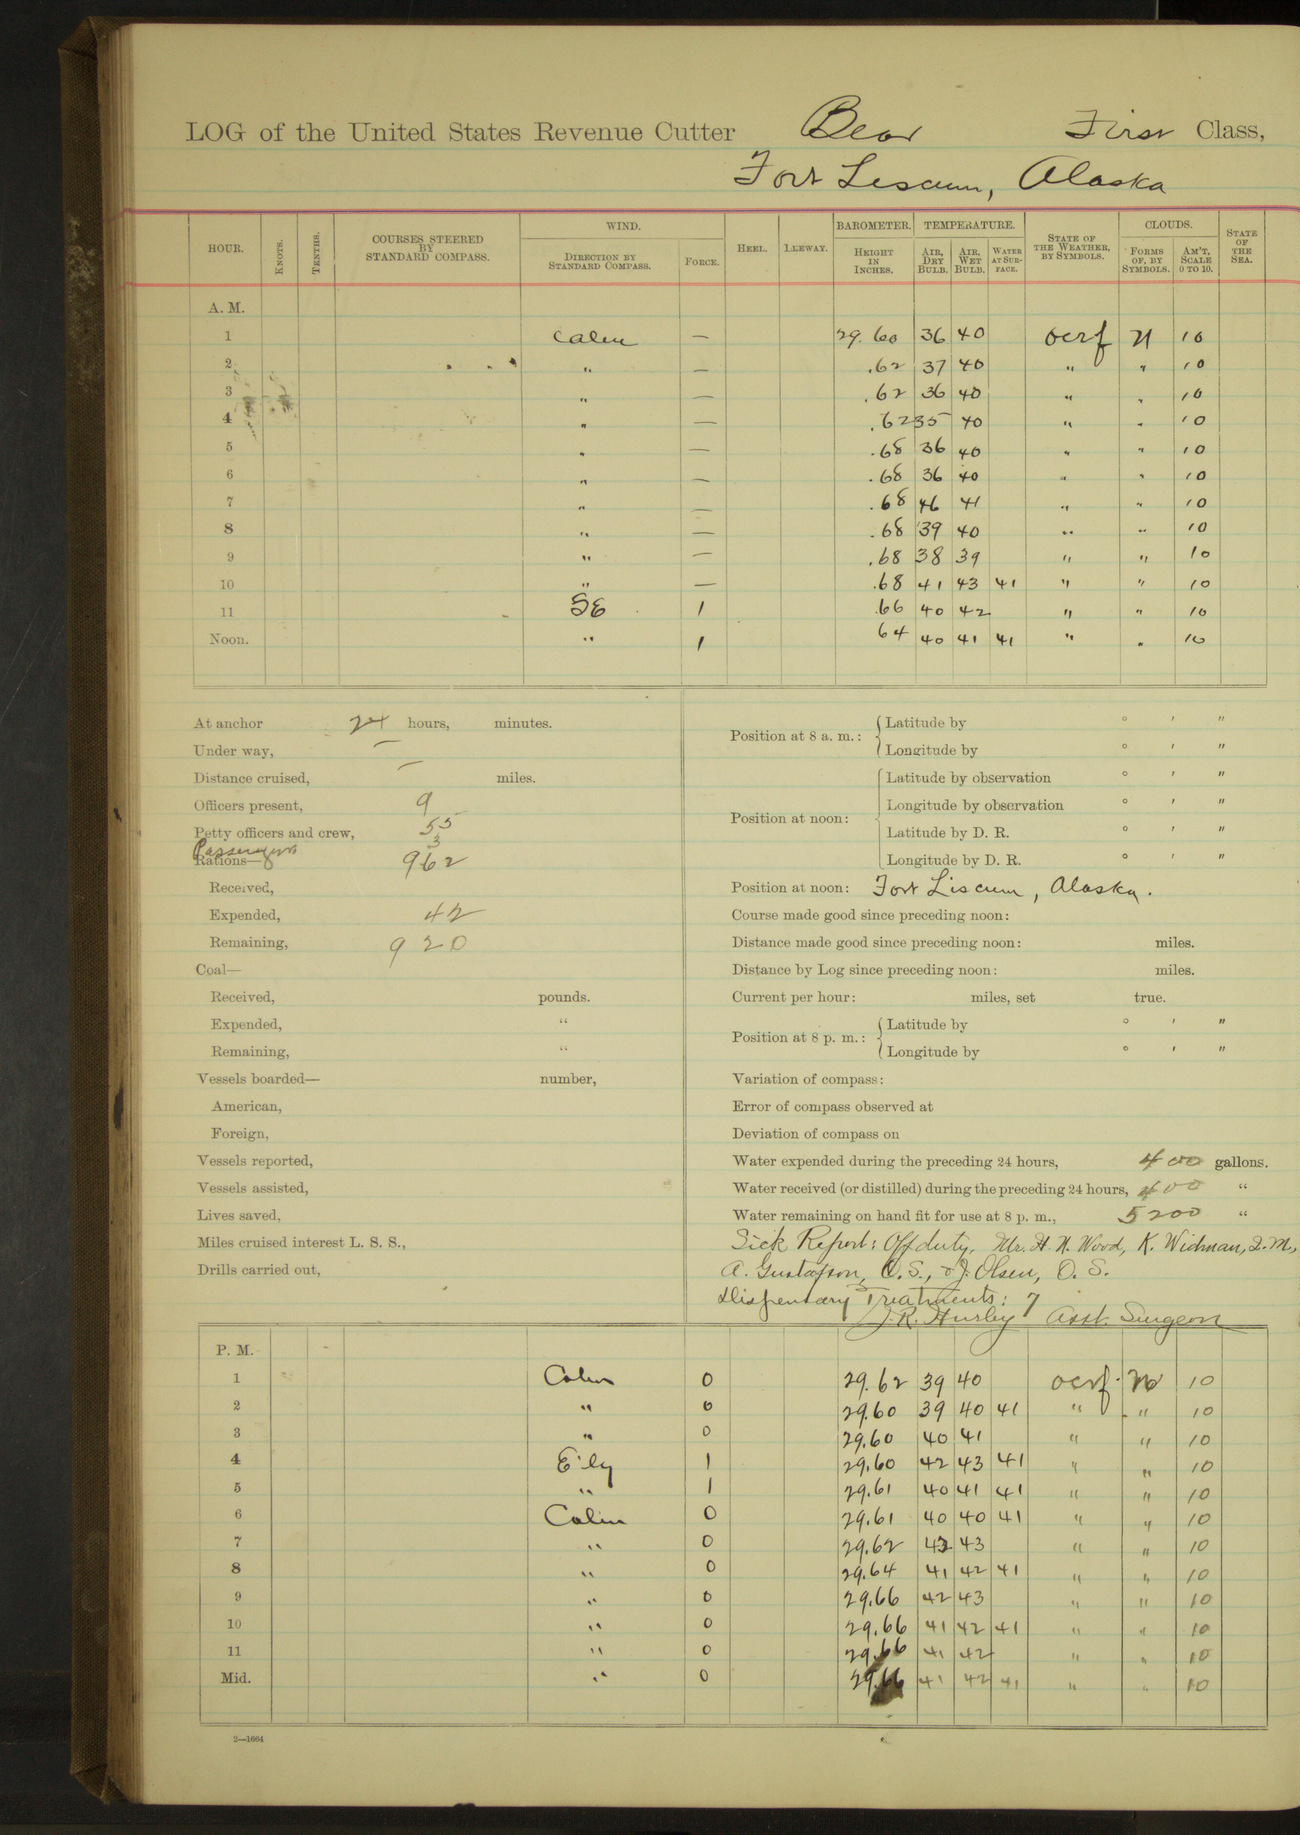 LOG of the United States Revenue Cutter Bear First Class,
Fort Liscum, Alaska
HOUR. KNOTS. TENTHS. COURSES STEERED BY STANDARD COMPASS. WIND. DIRECTION BY STANDARD COMPASS. FORCE. HEEL. LEEWAY. BAROMETER. HEIGHT IN INCHES. TEMPERATURE. AIR, DRY BULB. AIR, WET BULB. WATER AT SURFACE. STATE OF THE WEATHER, BY SYMBOLS. CLOUDS. FORMS OF, BY SYMBOLS. AM'T, SCALE 0 TO 10. STATE OF THE SEA.
A. M.
1 Calm — 29.60 36 40 ocrf N 10
2 " — .62 37 40 " " 10
3 " — .62 36 40 " " 10
4 " — .62 35 40 " " 10
5 " — .68 36 40 " " 10
6 " — .68 36 40 " " 10
7 " — .68 46 41 " " 10
8 " — .68 39 40 " " 10
9 " — .68 38 39 " " 10
10 " — .68 41 43 41 " " 10
11 SE 1 .66 40 42 " " 10
Noon. " 1 64 40 41 41 " " 10
At anchor 24 hours, minutes.
Under way, —
Distance cruised, — miles.
Officers present, 9
Petty officers and crew, 55
Passengers 3
Rations— 962
Received,
Expended, 42
Remaining, 920
Coal—
Received, pounds.
Expended, "
Remaining, "
Vessels boarded— number,
American,
Foreign,
Vessels reported,
Vessels assisted,
Lives saved,
Miles cruised interest L. S. S.,
Drills carried out,
Position at 8 a. m.: Latitude by ° ′ ″
Longitude by ° ′ ″
Position at noon: Latitude by observation ° ′ ″
Longitude by observation ° ′ ″
Latitude by D. R. ° ′ ″
Longitude by D. R. ° ′ ″
Position at noon: Fort Liscum, Alaska.
Course made good since preceding noon:
Distance made good since preceding noon: miles.
Distance by Log since preceding noon: miles.
Current per hour: miles, set true.
Position at 8 p. m.: Latitude by ° ′ ″
Longitude by ° ′ ″
Variation of compass:
Error of compass observed at
Deviation of compass on
Water expended during the preceding 24 hours, 400 gallons.
Water received (or distilled) during the preceding 24 hours, 400 "
Water remaining on hand fit for use at 8 p. m., 5200 "
Sick Report: Off duty, Mr. H. N. Wood, K. Widman, Q.M.,
A. Gustafson, O.S., & J. Olsen, O. S.
Dispensary Treatments: 7
J. R. Hurley Asst. Surgeon
P. M.
1 Calm 0 29.62 39 40 ocrf N 10
2 " 0 29.60 39 40 41 " " 10
3 " 0 29.60 40 41 " " 10
4 E'ly 1 29.60 42 43 41 " " 10
5 " 1 29.61 40 41 41 " " 10
6 Calm 0 29.61 40 40 41 " " 10
7 " 0 29.62 43 " " 10
8 " 0 29.64 41 42 41 " " 10
9 " 0 29.66 42 43 " " 10
10 " 0 29.66 41 42 41 " " 10
11 " 0 29.66 41 42 " " 10
Mid. " 0 29.66 41 42 41 " " 10
2—1664